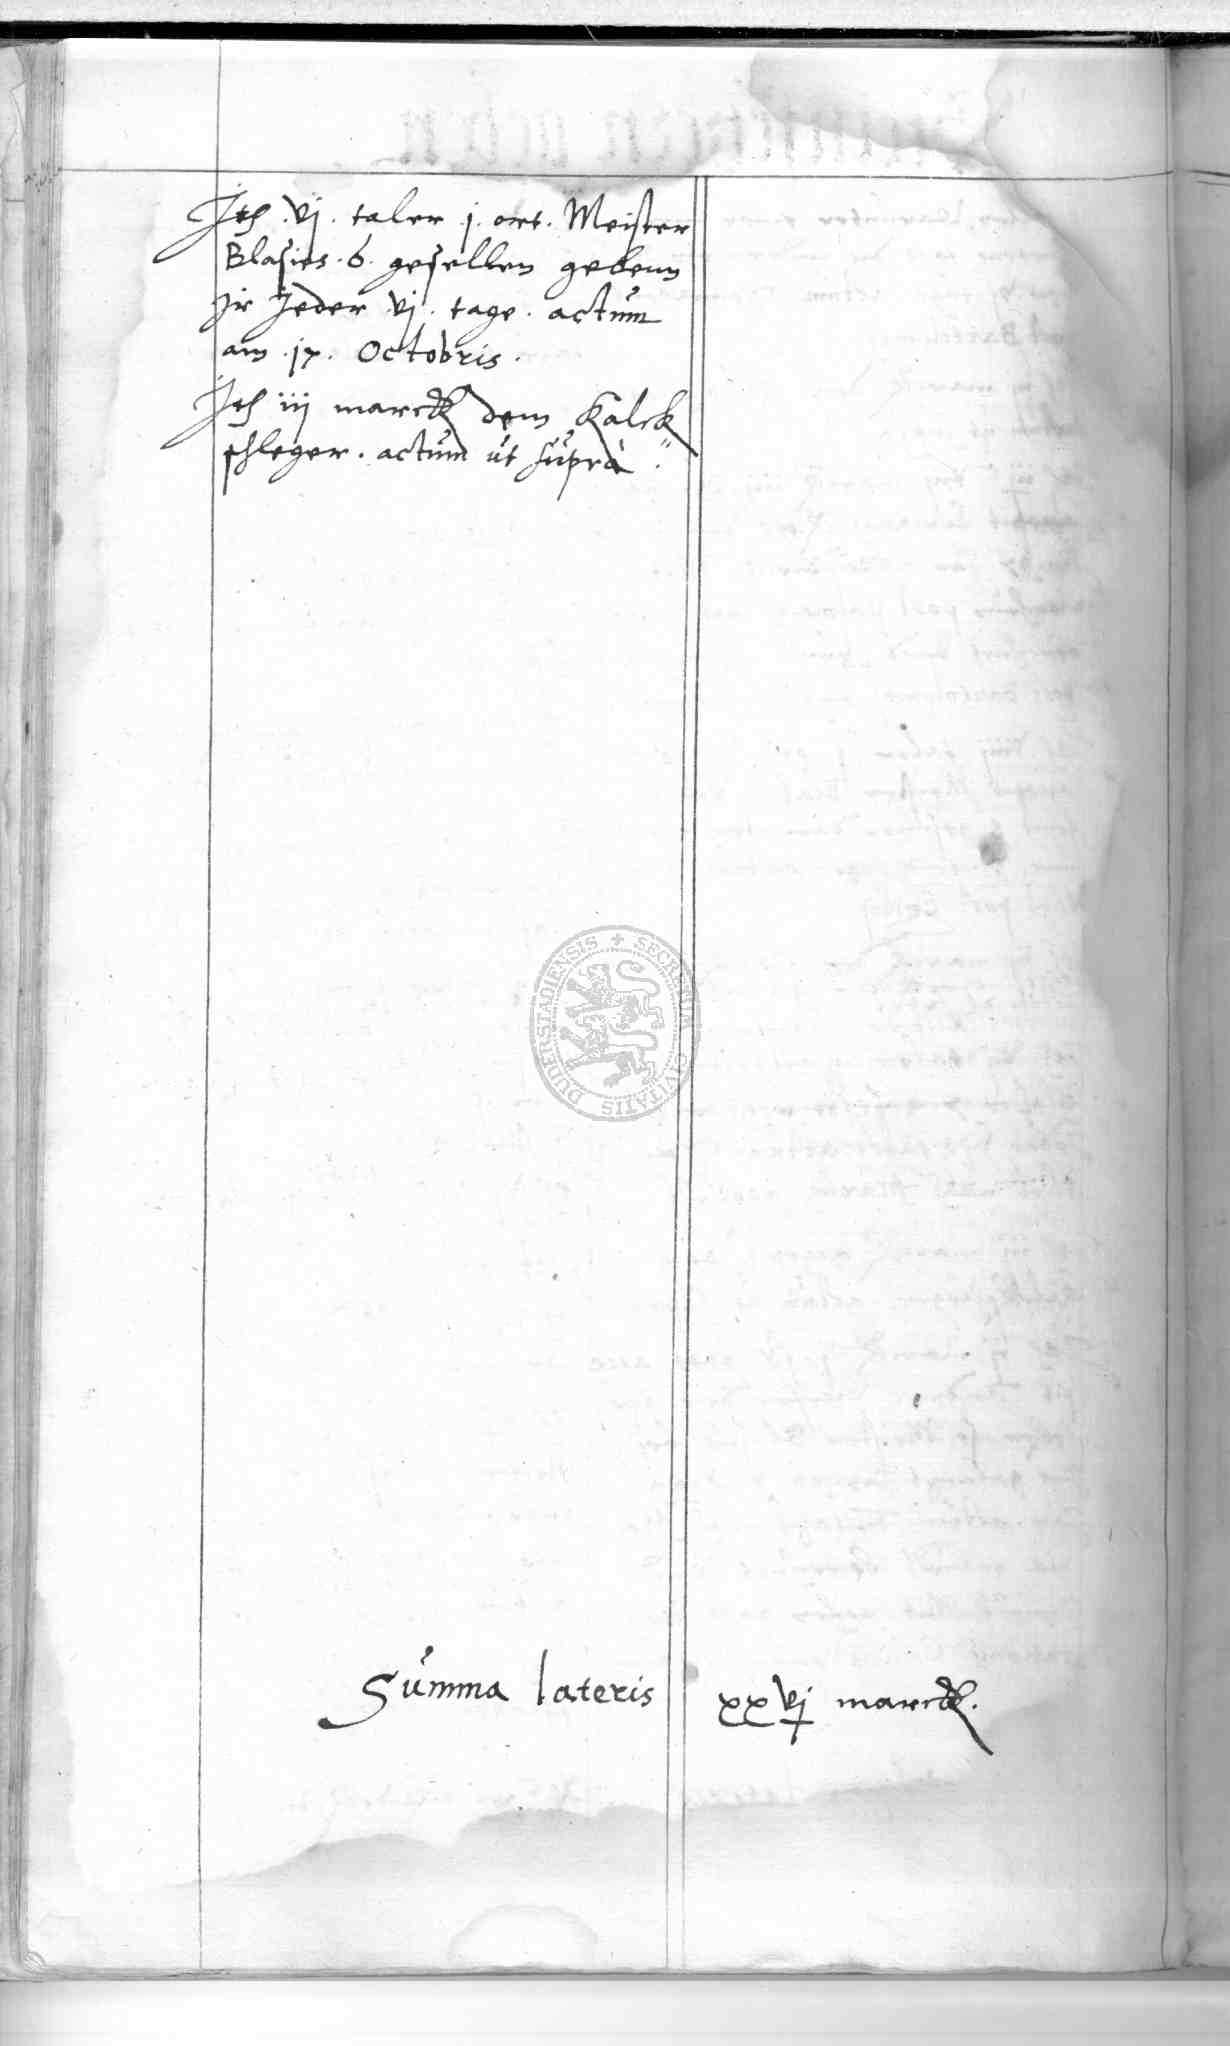 Jtem .vj. taler j. ort. Meister
Blasies .6. gesellen gebenn
Jr Jeder .vj. tage. actum
am .17. Octobris.
Jtem iij marck dem Kalck
schleger. actum ut supra
Summa lateris xxvj marck.
SECRETUM CIVITATIS DUDERSTADIENSIS